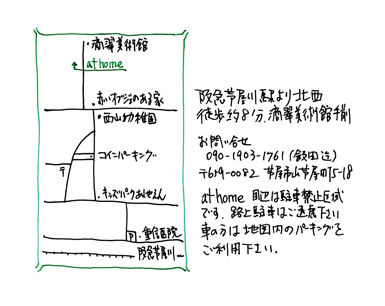 ・滴翠美術館
at home
・赤いオブジェのある家
・西山幼稚園
コインパーキング
〒
・キッズパークあしせん
P
・重信医院
阪急芦屋川
阪急芦屋川駅より北西
徒歩約8分、滴翠美術館手前
お問い合せ
090-1903-1761 (飯田辻)
〒659-0082 芦屋市山芦屋町5-18
at home 周辺は駐車禁止区域
です。路上駐車はご遠慮下さい
車の方は地図内のパーキングを
ご利用下さい.